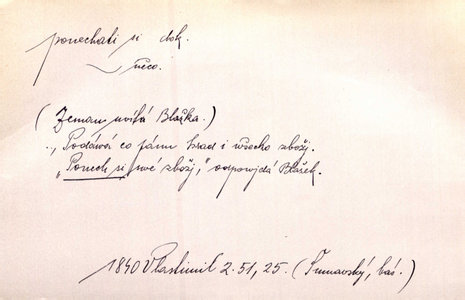 ponechati si dok.
něco.
(Zeman uvítá Blažka.)
„Podává co pánu hrad i wšecko zbožj.
„Ponech si swé zbožj," odpowjdá Blažek.
1840 Vlastimil 2. 51, 25. (Šumavský, báś.)